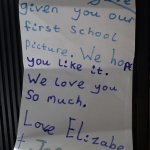 given you our
first school
picture. We hope
you like it.
We love you
so much.
Love